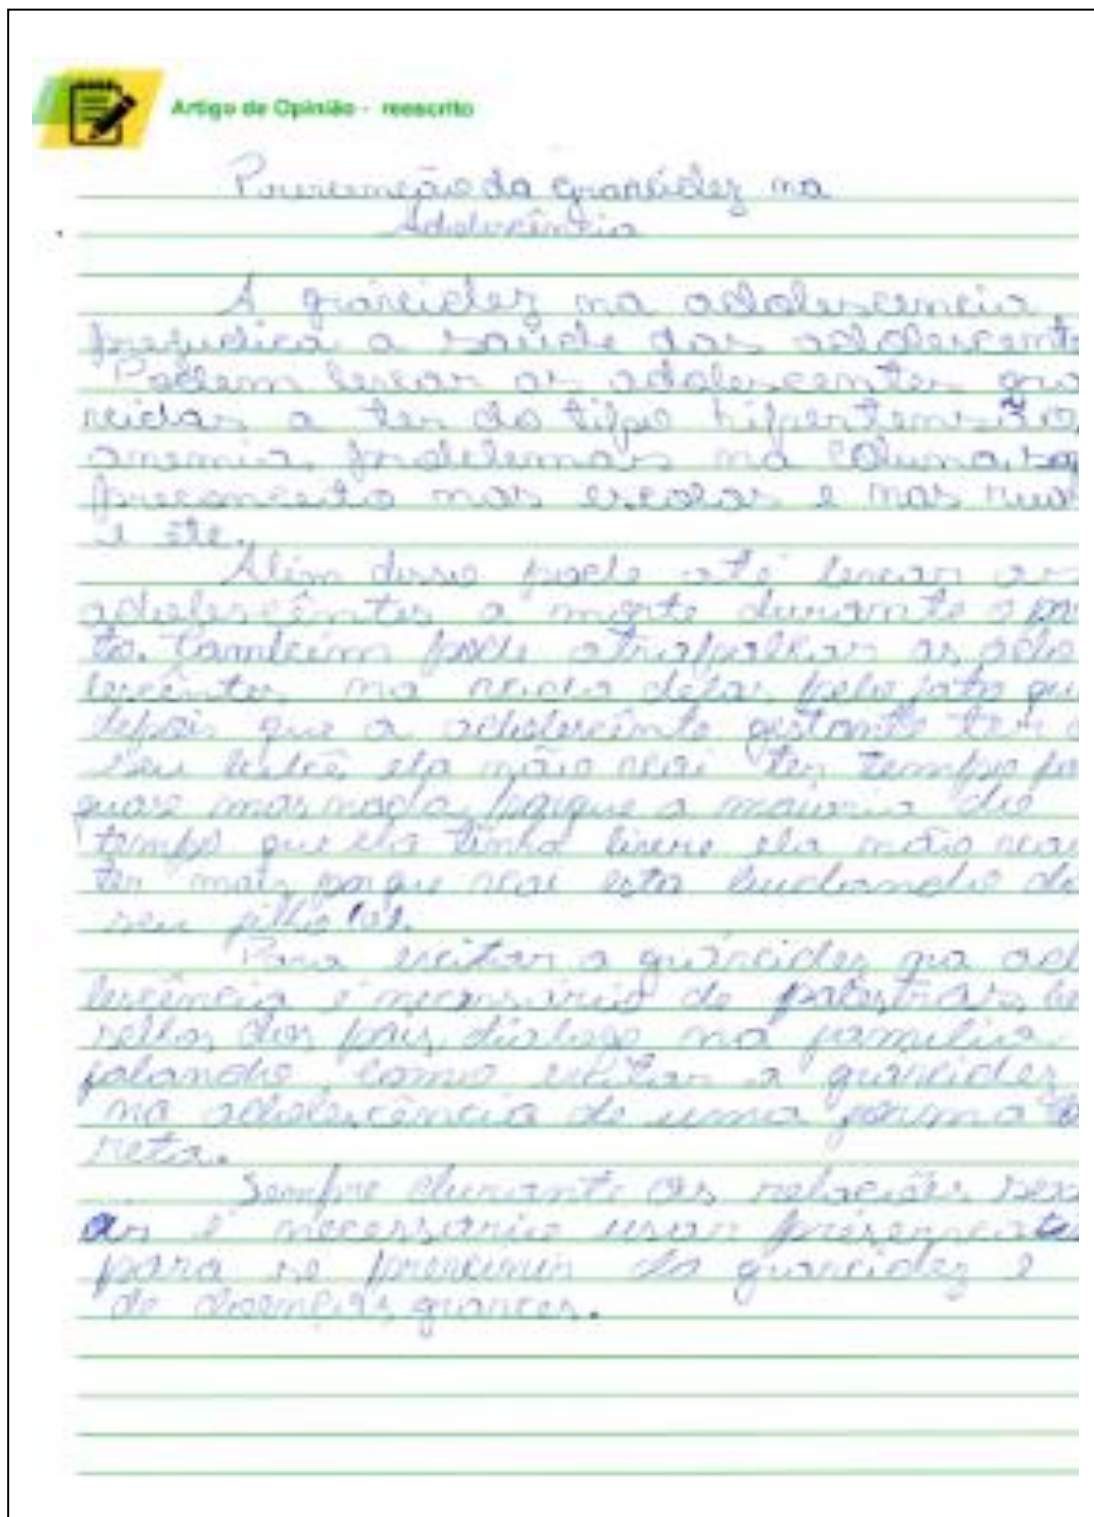 Artigo de Opinião - reescrito
Prevenção da gravidez na
Adolescência
A gravidez na adolescencia
prejudica a saúde das adolescent
Podem levar as adolescentes gra
vidas a ter do tipo hipertensão,
anemia, problemas na coluna,
preconceito nas escolas e nas rua
e etc.
Além disso pode até levar as
adolescêntes a morte durante o par
to. Também pode atrapalhar as ado
lescêntes na vida delas pelo fato que
depois que a adolescênte gestante ter o
seu bebê ela não vai ter tempo pa
quase mas nada, porque a maioria do
tempo que ela tinha livre ela não vai
ter mais porque vai esta cuidando do
seu filho (a).
Para evitar a gravidez na ado
lescência é necessário de palestras,
dos pais, dialogo na familia
falando como evitar a gravidez
na adolescência de uma forma co
reta.
Sempre durante as relações sexu
ais é necessario usar preservati
para se prevenir da gravidez e
de doenças graves.